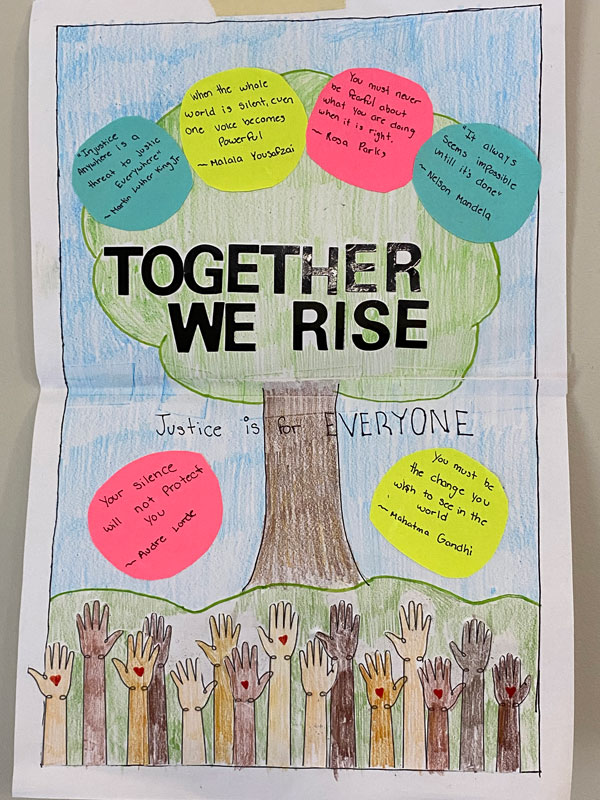 "Injustice
Anywhere is a
threat to Justic
Everywhere"
~ Martin Luther King Jr
When the whole
world is silent, even
one voice becomes
Powerful
~ Malala Yousafzai
You must never
be fearful about
what you are doing
when it is right.
~ Rosa Parks
"It always
Seems impossible
untill it's done"
~ Nelson Mandela
TOGETHER
WE RISE
Justice is for EVERYONE
Your silence
will not Protect
you
~ Audre Lorde
You must be
the change you
wish to see in the
world
~ Mahatma Gandhi